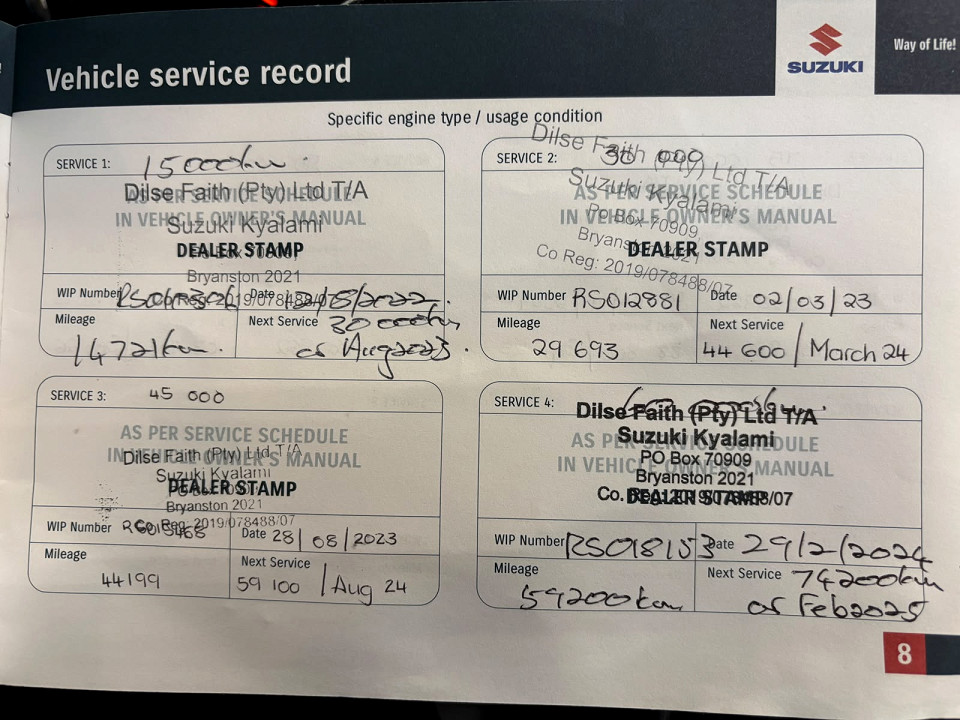 Vehicle service record
SUZUKI
Way of Life!
Specific engine type / usage condition
SERVICE 1: 15000km.
Dilse Faith (Pty) Ltd T/A
AS PER SERVICE SCHEDULE
Suzuki Kyalami
IN VEHICLE OWNER'S MANUAL
DEALER STAMP
PO Box 70909
Bryanston 2021
Co Reg: 2019/078488/07
WIP Number
Date 12/8/2022.
Mileage
14721km.
Next Service 30000km
or Aug 2023.
SERVICE 2: 30 000
Dilse Faith (Pty) Ltd T/A
Suzuki Kyalami
AS PER SERVICE SCHEDULE
IN VEHICLE OWNER'S MANUAL
PO Box 70909
Bryanston 2021
DEALER STAMP
Co Reg: 2019/078488/07
WIP Number RS012881
Date 02/03/23
Mileage
29 693
Next Service
44 600 / March 24
SERVICE 3: 45 000
AS PER SERVICE SCHEDULE
Dilse Faith (Pty) Ltd T/A
IN VEHICLE OWNER'S MANUAL
Suzuki Kyalami
DEALER STAMP
PO Box 70909
Bryanston 2021
Co Reg: 2019/078488/07
WIP Number
Date 28/08/2023
Mileage
44199
Next Service
59 100 / Aug 24
SERVICE 4:
Dilse Faith (Pty) Ltd T/A
Suzuki Kyalami
AS PER SERVICE SCHEDULE
PO Box 70909
IN VEHICLE OWNER'S MANUAL
Bryanston 2021
Co. Reg: 2019/078488/07
DEALER STAMP
WIP Number RS018153
Date 29/2/2024
Mileage
59200km
Next Service 74200km
or Feb 2025
8